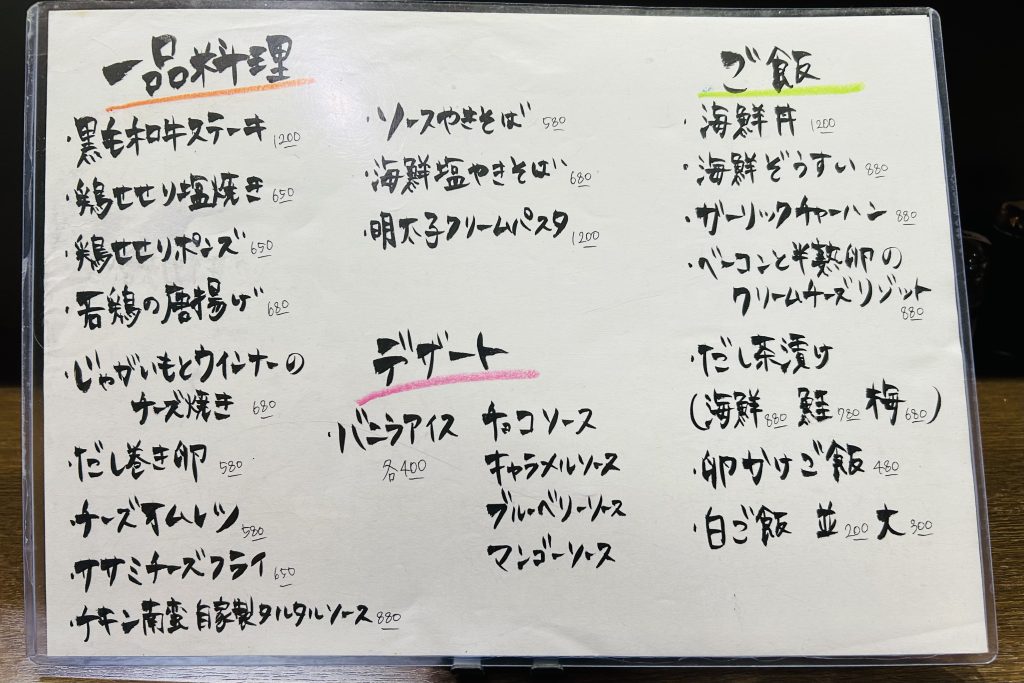 一品料理
・黒毛和牛ステーキ 1200
・鶏せせり塩焼き 650
・鶏せせりポンズ 650
・若鶏の唐揚げ 680
・じゃがいもとウインナーの
チーズ焼き 680
・だし巻き卵 580
・チーズオムレツ 580
・ササミチーズフライ 650
・チキン南蛮 自家製タルタルソース 880
・ソースやきそば 580
・海鮮塩やきそば 680
・明太子クリームパスタ 1200
デザート
・バニラアイス チョコソース
各400 キャラメルソース
ブルーベリーソース
マンゴーソース
ご飯
・海鮮丼 1200
・海鮮ぞうすい 880
・ガーリックチャーハン 880
・ベーコンと半熟卵の
クリームチーズリゾット
880
・だし茶漬け
(海鮮 880 鮭 780 梅 680)
・卵かけご飯 480
・白ご飯 並 200 大 300